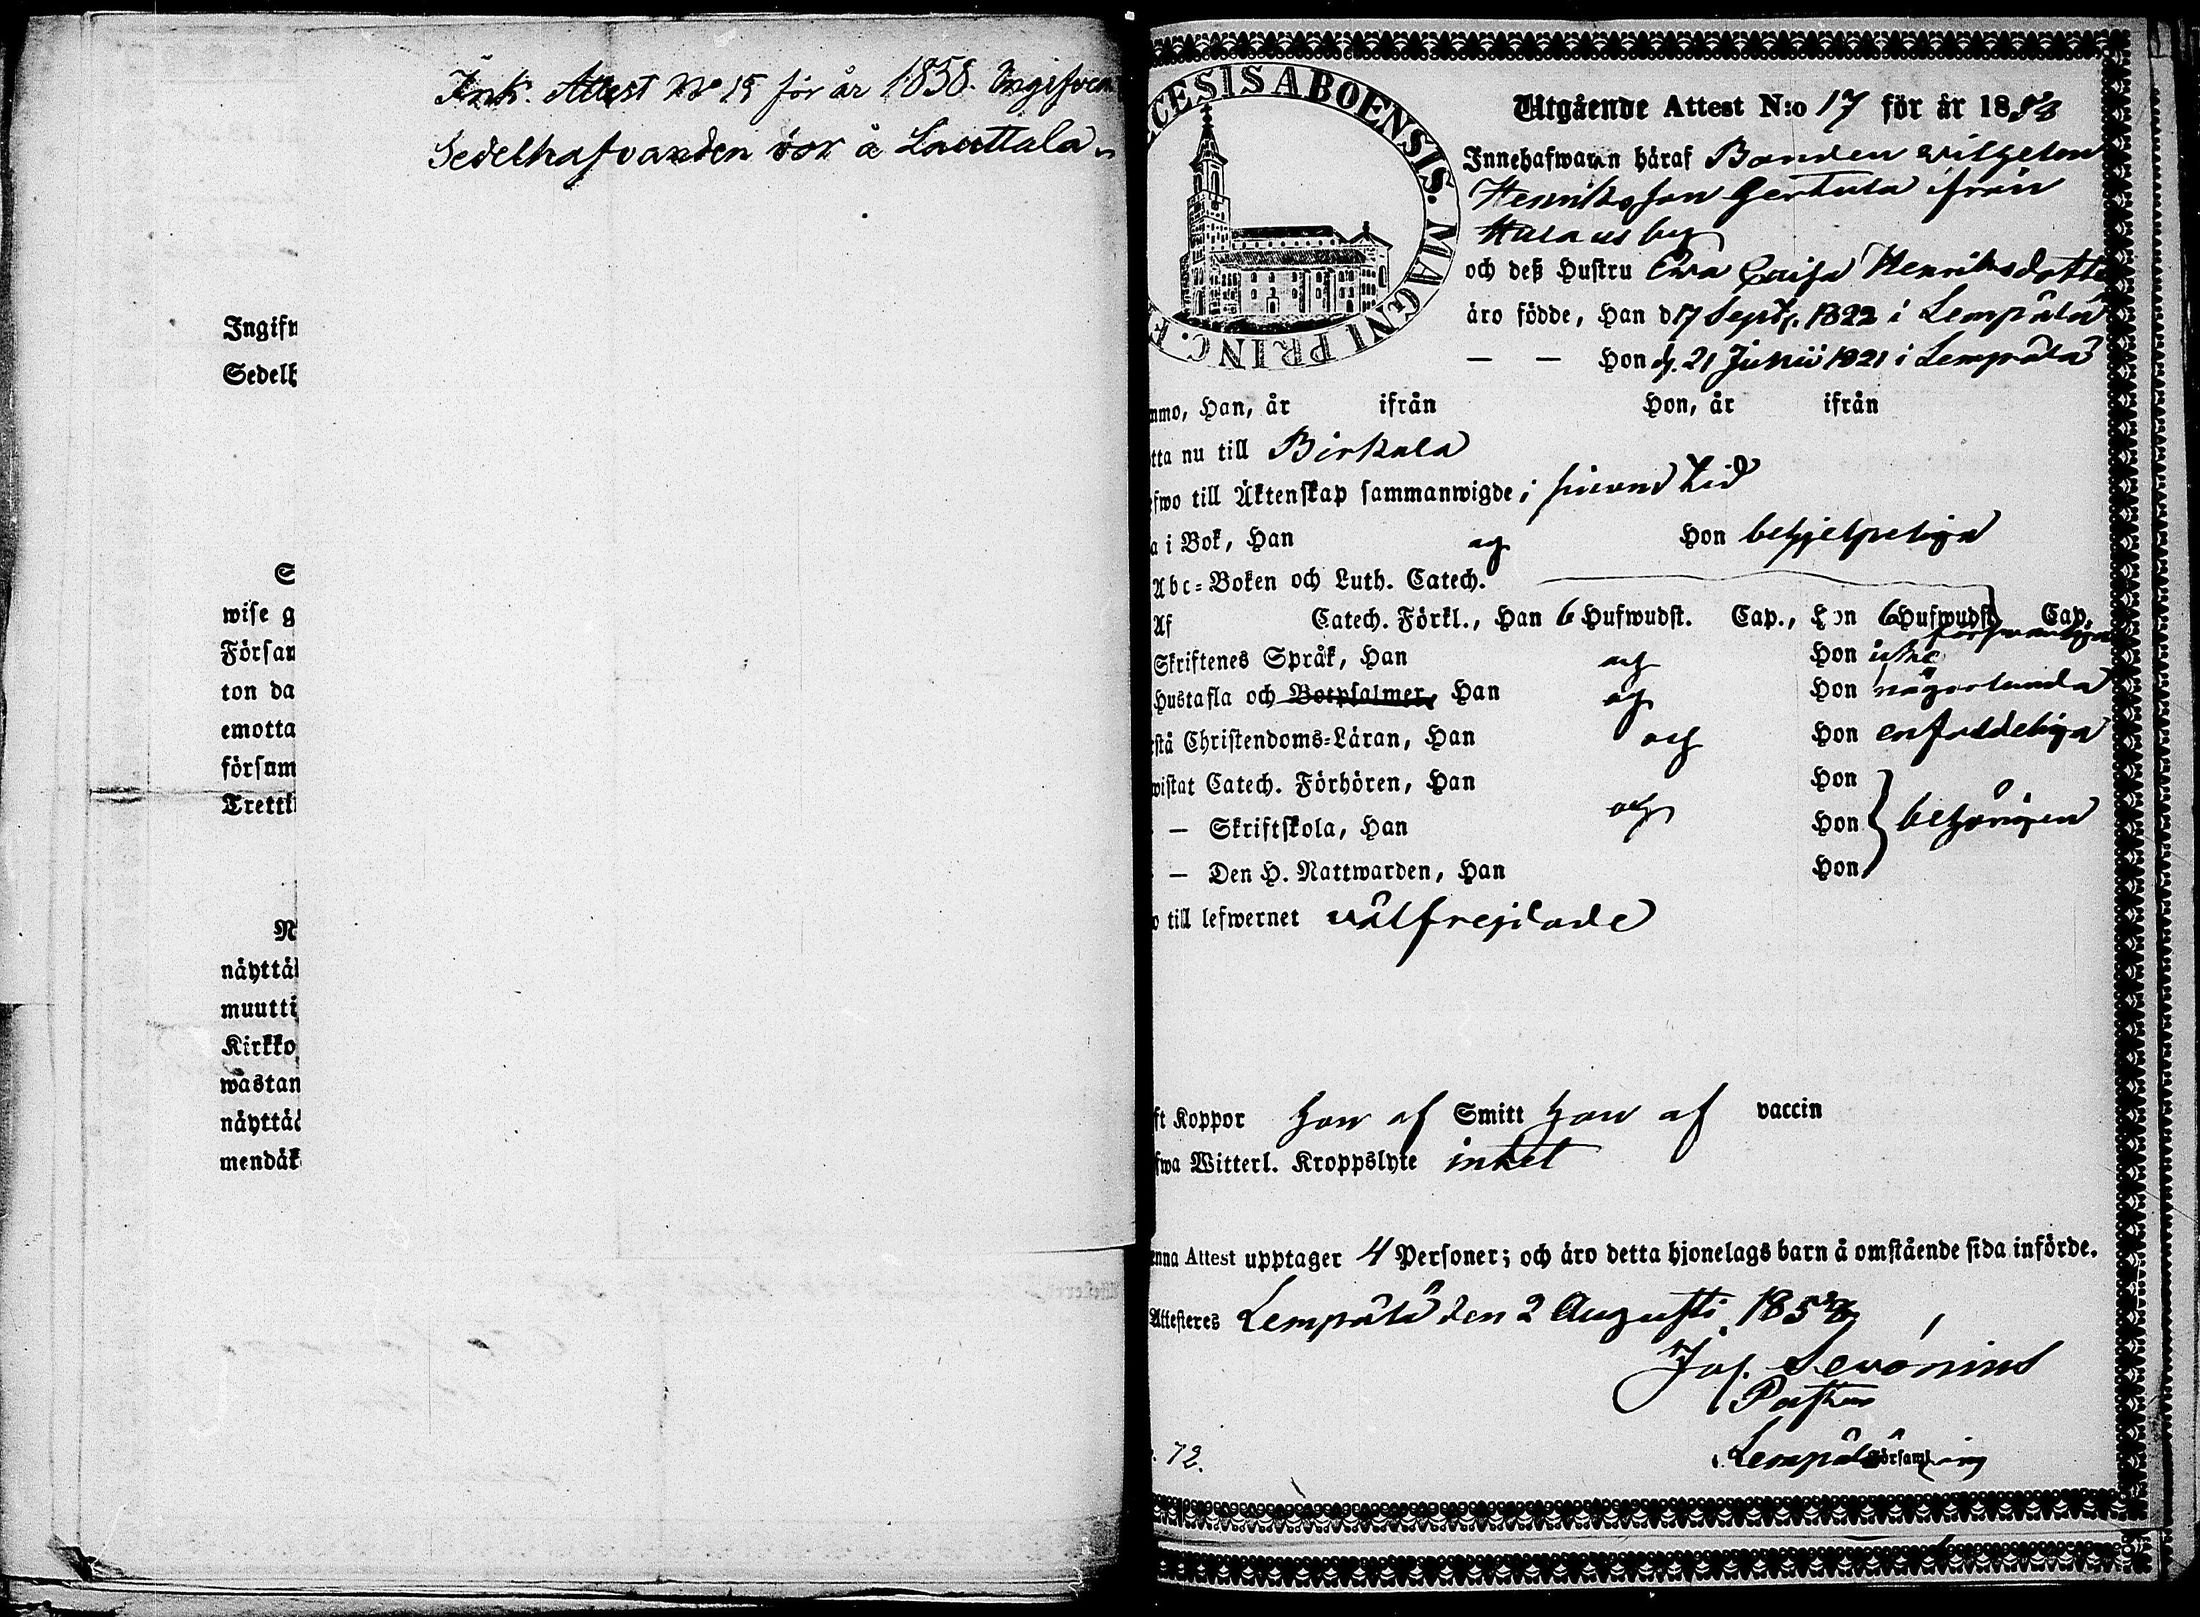 Ink. Attest No 15 för år 1858. Ingifven
Sedelhafvanden bor å Lauttala
Ingifv
Sedelh
S
wise g
Försam
ton da
emotta
försum
Trettki
N
näyttä
muutti
Kirkko
wastan
näyttä
mendäk
DIOECESIS ABOENSIS. MAGNI PRINC. F
Utgående Attest N:o 17 för år 1858
Innehafwaren häraf Bonden
Henriksson Gertula ifrån
by
och deß Hustru Eva Caisa Henriksdotter
äro födde, Han d. 17 Sept. 1822 i Lempälä
— — Hon d. 21 Junii 1821 i Lempälä
mmo, Han, år ifrån Hon, år ifrån
tta nu till Birkala
fwo till Äktenskap sammanwigde i sinom tid
a i Bok, Han och Hon behjelpeliga
Abc-Boken och Luth. Catech.
Af Catech. Förkl., Han 6 Hufwudst. Cap., Hon 6 Hufwudst. Cap.
Skriftenes Språk, Han och Hon icke
Hustafla och Botpsalmer, Han och Hon någorlunda
stå Christendoms-Läran, Han och Hon enfaldeliga
wistat Catech. Förhören, Han Hon
— Skriftskola, Han och Hon behörigen
— Den H. Nattwarden, Han Hon
o till lefwernet välfrejdade
ft Koppor Han af Smitt Hon af vaccin
fwa Witterl. Kroppslyte intet
enna Attest upptager 4 Personer; och äro detta hjonelags barn å omstående sida införde.
Attesteres Lempälä den 2 Augusti 1858
Jos. Sevonius
Pastor
i Lempälä Församling
72.